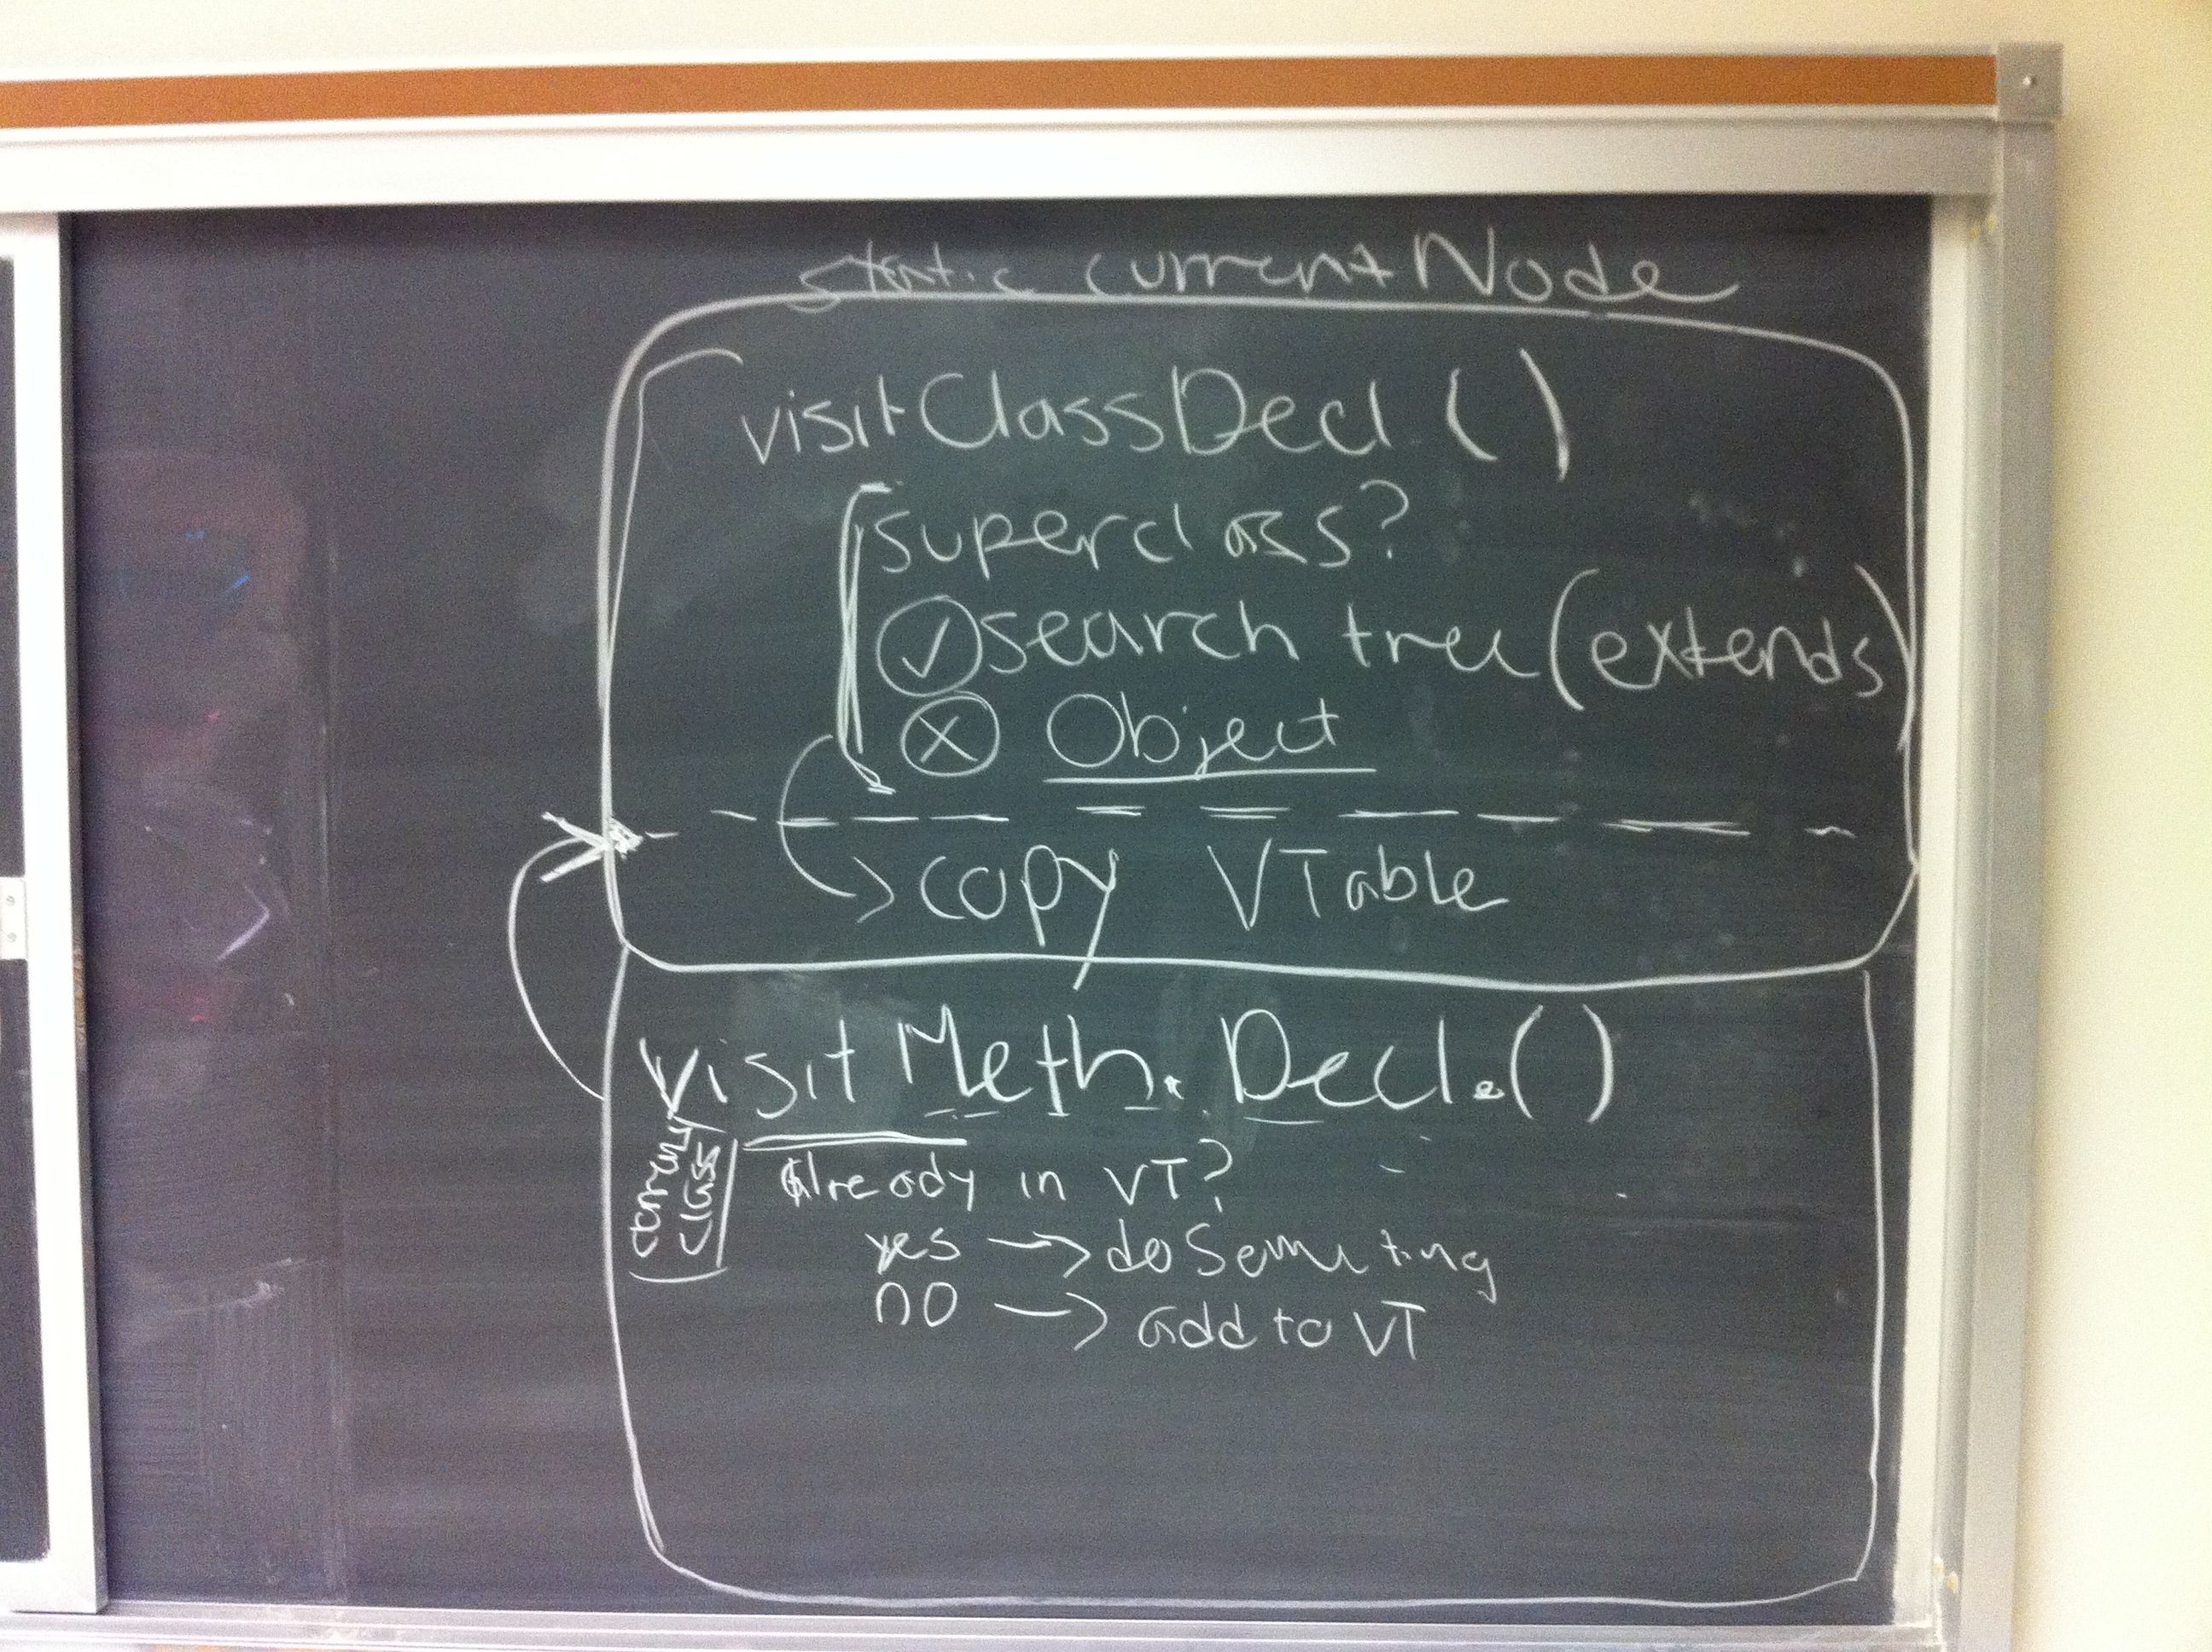 static currentNode
visitClassDecl ()
superclass?
search tree (extends)
Object
copy VTable
visit Meth. Decl. ()
current
class
Already in VT?
yes → do Something
no → add to VT